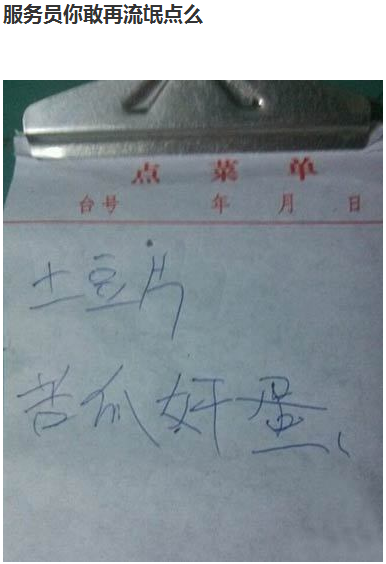 服务员你敢再流氓点么
点菜单
台号 年 月 日
土豆片
苦瓜奸蛋、